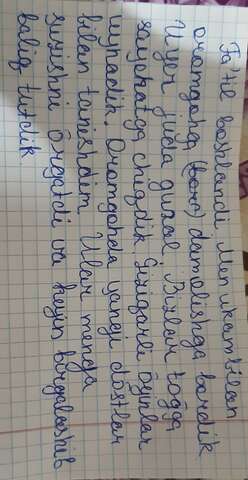 Ta'til boshlandi. Men ukam bilan
oromgohga (borv) damolishga bordik
U yer juda guzal Bizlar toğga
sayohatga chiqdik. Qiziqarli öyinlar
uynadik. Oromgohda yangi döstlar
bilan tanishdim. Ular menga
suzishni örgatdi va keyin birgalashib
baliq tutdik